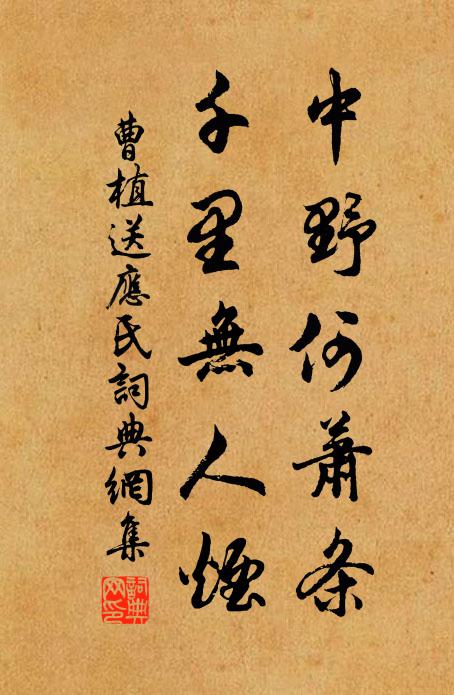 中野何蕭条
千里無人煙
曹植送應氏詞典網集
詞典網印